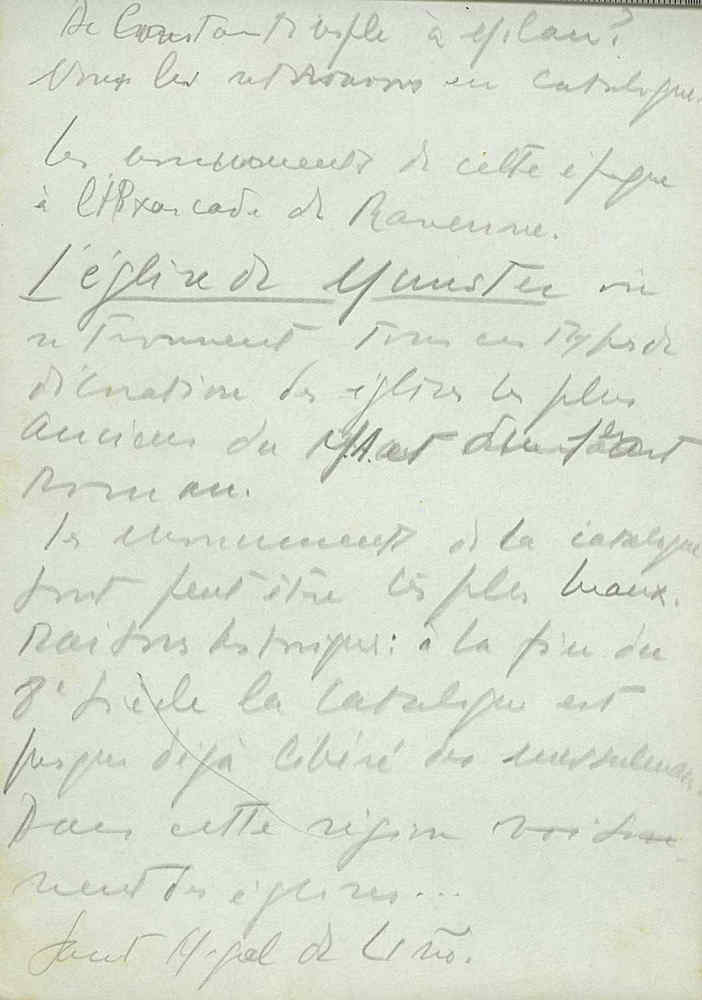 De Constantinople à Milan?
Nous les retrouvons en Catalogne
Les monuments de cette époque
à l'Exarcade de Ravenne.
L'église de Munster où
se trouvent tous ces types de
décoration des églises les plus
anciens du art
Roman.
Les monuments de la Catalogne
sont peut être les plus beaux.
Raisons historiques: à la fin du
8e siècle la Catalogne est
presque déjà libéré des musulmans.
Dans cette région
nent des églises...
Sant Migel de Liño.